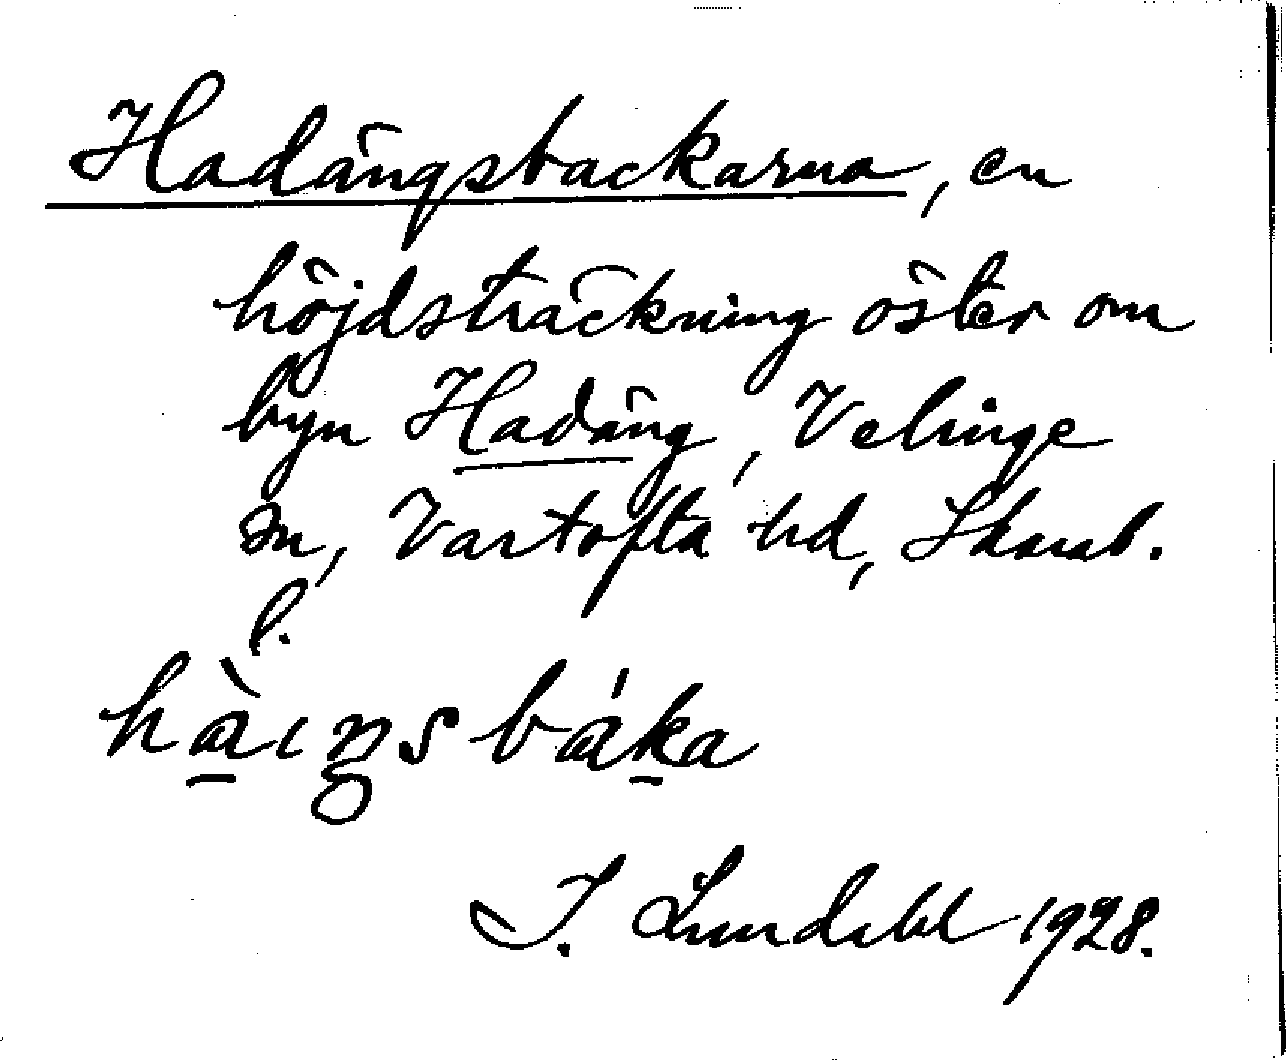 Hadängsbackarna, en
höjdsträckning öster om
byn Hadäng, Velinge
sn, Vartofta hd, Skarab.
l.
hàıŋsbáka
I. Lundahl 1928.